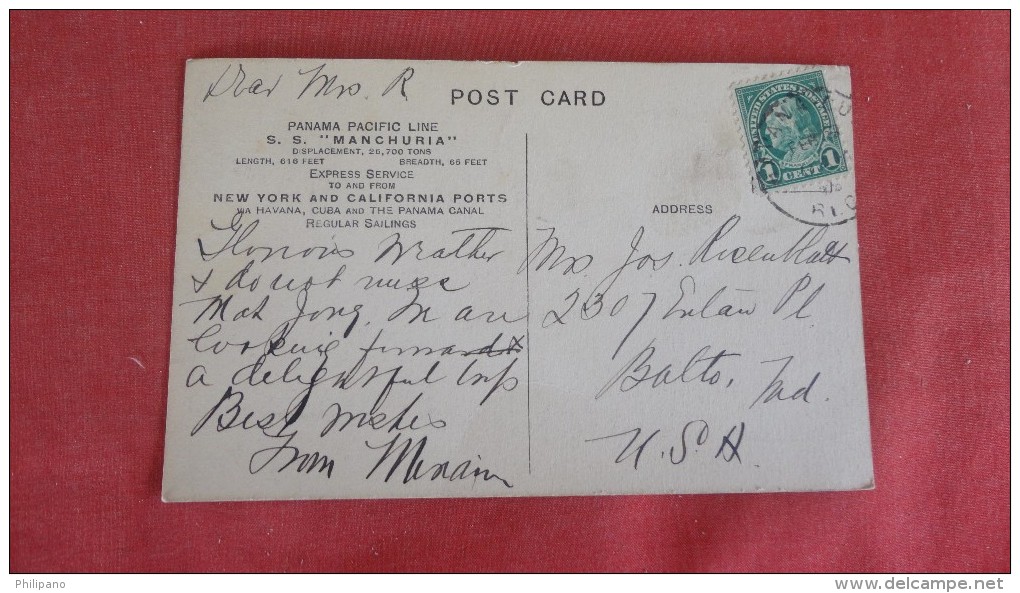 Dear Mrs. R
POST CARD
PANAMA PACIFIC LINE
S. S. "MANCHURIA"
DISPLACEMENT, 26,700 TONS
LENGTH, 616 FEET BREADTH, 65 FEET
EXPRESS SERVICE
TO AND FROM
NEW YORK AND CALIFORNIA PORTS
VIA HAVANA, CUBA AND THE PANAMA CANAL
REGULAR SAILINGS
Glorious Weather
& do not miss
Mah Jong.
looking forward
a delightful trip
Best wishes
From
ADDRESS
Mrs. Jos. Rosenblatt
2307 Eutaw Pl
Balto, Md.
U.S.A.
UNITED STATES POSTAGE
1 CENT 1
Philipano
www.delcampe.net